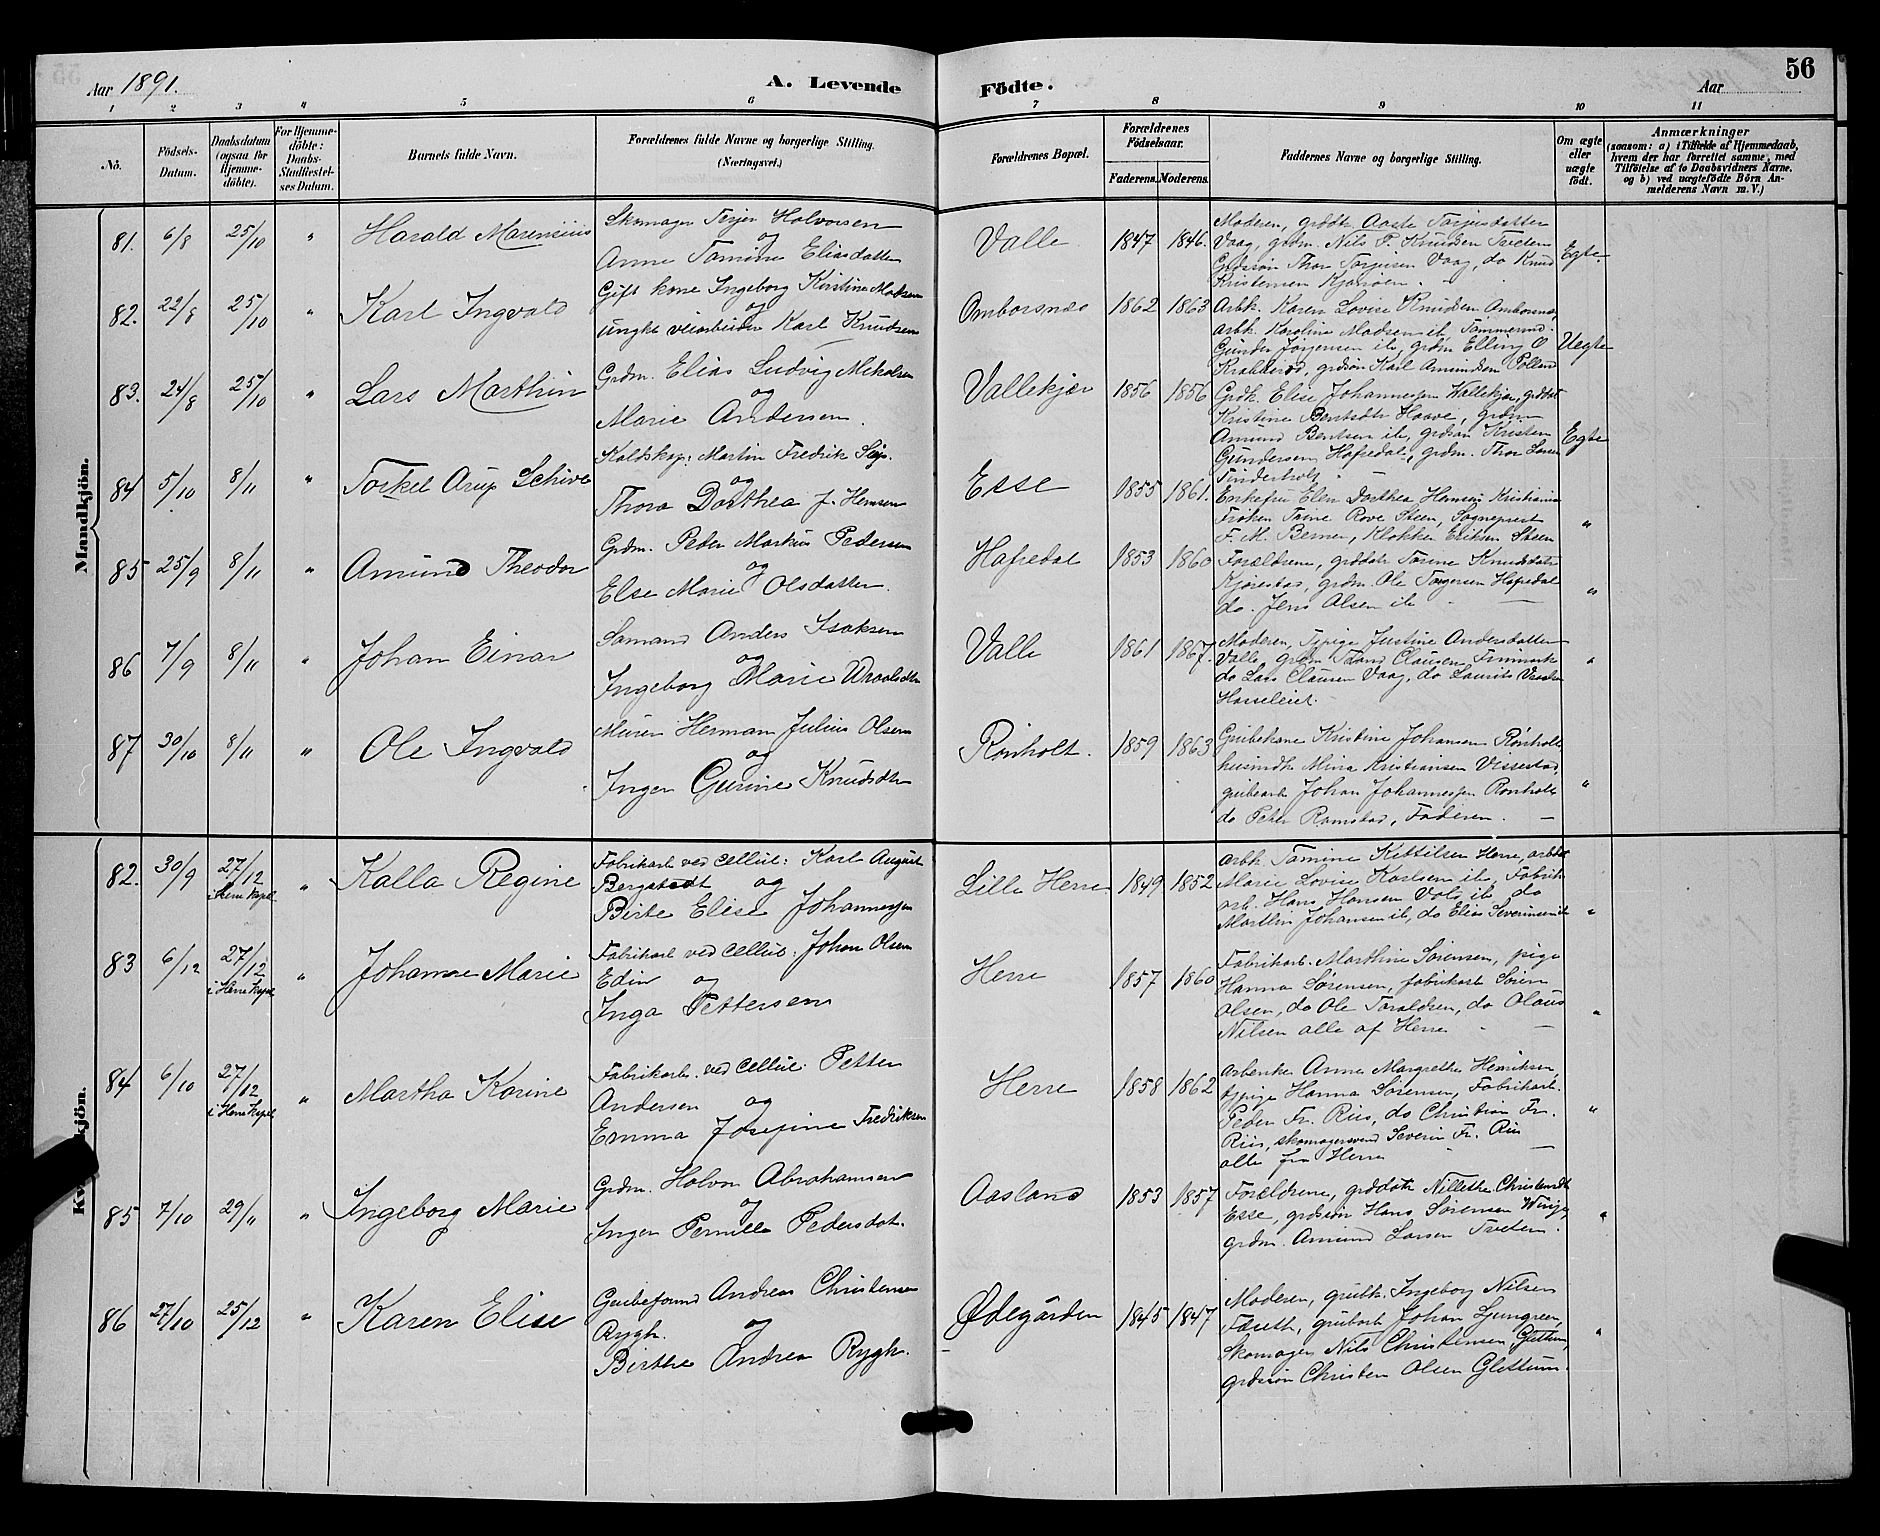 Aar 1891.
A. Levende
Födte.
Aar
56
1 2 3 4 5 6 7 8 9 10 11
No.
Födsels-
Datum.
Daabsdatum
(ogsaa for
Hjemme-
döbte).
For Hjemme-
döbte:
Daabs-
Stadfæstel-
ses Datum.
Barnets fulde Navn.
Forældrenes fulde Navne og borgerlige Stilling.
(Næringsvei.)
Forældrenes Bopæl.
Forældrenes
Födselsaar.
Faderens. Moderens.
Faddernes Navne og borgerlige Stilling.
Om ægte
eller
uægte
født.
Anmærkninger
(saasom: a) i Tilfælde af Hjemmedaab,
hvem der har forrettet samme, med
Tilföielse af to Daabsvidners Navne.
og b) ved uægtefödte Börn An-
melderens Navn m. V.)
Mandkjön.
81. 6/8 25/10 " Harald Marensius
Skomager Terjer Halvorsen
og
Anne Tomine Eliasdatter
Valle 1847 1846.
Moderen, grddtr Aaste Torjusdatter
Vaag, grdm. Nils P. Knudsen Treten
Grdssøn Thor Torjusen Vaag, do Knud
Kristensen Kjøroen.
Egte.
82. 22/8 25/10 " Karl Ingvald
Gift kone Ingeborg Kirstine Madsen
og
ungk veiarbeider Karl Knudsen
Omborsnæs 1862 1863
Arbk. Karen Lovise Knudsen Omborsnæs,
arbk. Karoline Madsen ib, Tømmermd.
Gunder Jørgensen ib, grdm Elling O
Krabberød, grdsøn Karl Amundsen Pollen
Uegte
83. 24/8 25/10 " Lars Marthin
Grdm. Elias Ludvig Mikalsen
og
Marie Andersen.
Vallekjær 1856 1856
Grdk. Elise Johannessen Vallekjær, grddtr
Kristine Bentsdtr Haave, grdm
Amund Bentsen ib, grdsøn Kristen
Gundersen Hafredal, grdm. Thor Larsen
Tinderholt
Egte
84 5/10 8/11 " Torkel Arup Schive
Koldskap: Martin Fredrik
og
Thora Dorthea f. Hemsen
Esse 1855 1861.
Enkefru Elen Dorthea Hemsen Kristiania
Frøken Taine Rove Steen, Sogneprest
F. M. Berner, Klokker Eriksen Steen
"
85 25/9 8/11 " Amund Theodor
Grdm. Peder Markus Pedersen
og
Else Marie Olsdatter.
Hafredal 1853 1860
Forældrene, grddatr Torine Knudsdatr
Kjørestad, grdm Ole Torgersen Hafredal
do. Jens Olsen ib —
"
86 7/9 8/11 " Johan Einar
Sømand Anders Isaksen
og
Ingeborg Marie
Valle 1861 1867.
Moderen, Tjpige Justine Andersdatter
Valle grdm Clausen
do Lars Clausen Vaag, do Laurits
Hasseleiet.
"
87 30/10 8/11 " Ole Ingvald
Murer Herman Julius Olsen
og
Inger Gurine Knudsdtr
Rønholt. 1859 1863
Grubekone Kristine Johansen Rønholt,
husmdk Mina Kristiansen Vissestad,
grubearb Johan Johannessen Rønholt
do Peter Ramstad, Faderen. —
"
Kv kjön.
82. 30/9 27/12 i Herre Kapel " Kalla Regine
Fabrikarb ved Cellul: Karl August
Bergstadt og
Birte Elise Johannessen
Lille Herre 1849 1852
Arbk. Tomine Kittilsen Herre, arbdat
Marie Lovise Karlsen ib, Fabrik-
arb. Hans Hansen Vols ib, do
Marthin Johansen ib, do Elias Severinsen ib
"
83 6/12 27/12 i Herre Kapel " Johanne Marie
Fabrikarb ved Cellul: Johan Olsen
Edin og
Inga Pettersen
Herre 1857 1860
Fabrikarb. Marthine Sørensen, pige
Hanna Sørensen, fabrikarb Søren
Olsen, do Ole Taraldsen, do Olaus
Nilsen alle af Herre —
"
84 6/10 27/12 i Herre Kapel " Martha Karine
Fabrikarb. ved Cellul: Petter
Andersen og
Emma Josefine Fredriksen
Herre 1858 1862
Arbenke Anne Margrethe Henriksen,
tjpige Hanna Sørensen, Fabrikarb.
Peder Fr. Riis, do Christian Fr.
Riis, skomagersvend Severin Fr. Riis
alle fra Herre —
"
85 7/10 29/11 " Ingeborg Marie
Grdm. Halvor Abrahamsen
og
Inger Pernille Pedersdat.
Aasland 1853 1857
Forældrene, grddatr Nillette Christensdtr
Esse, grdsøn Hans Sørensen Winje,
grdm. Amund Larsen Treten.
"
86 27/10 25/12 " Karen Elise
Grubeformd Andreas Christensen
Rygh. og
Birthe Andrea Rygh.
Ødegården 1845 1847
Moderen, grubk. Ingeborg Nilsen
Faseth, grubarb Johan Ljungren,
Skomager Nils Christensen Glittum,
grdssøn Christen Olsen Glettum.
"